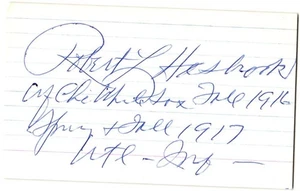 Robert L Hasbrook
Chi White Sox Fall 1916
Spring + Fall 1917
Utl - Inf -